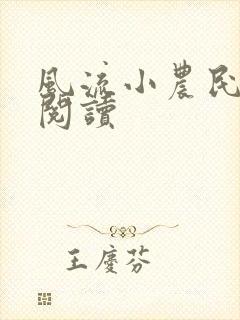 風流小農民
閱讀
王慶芬